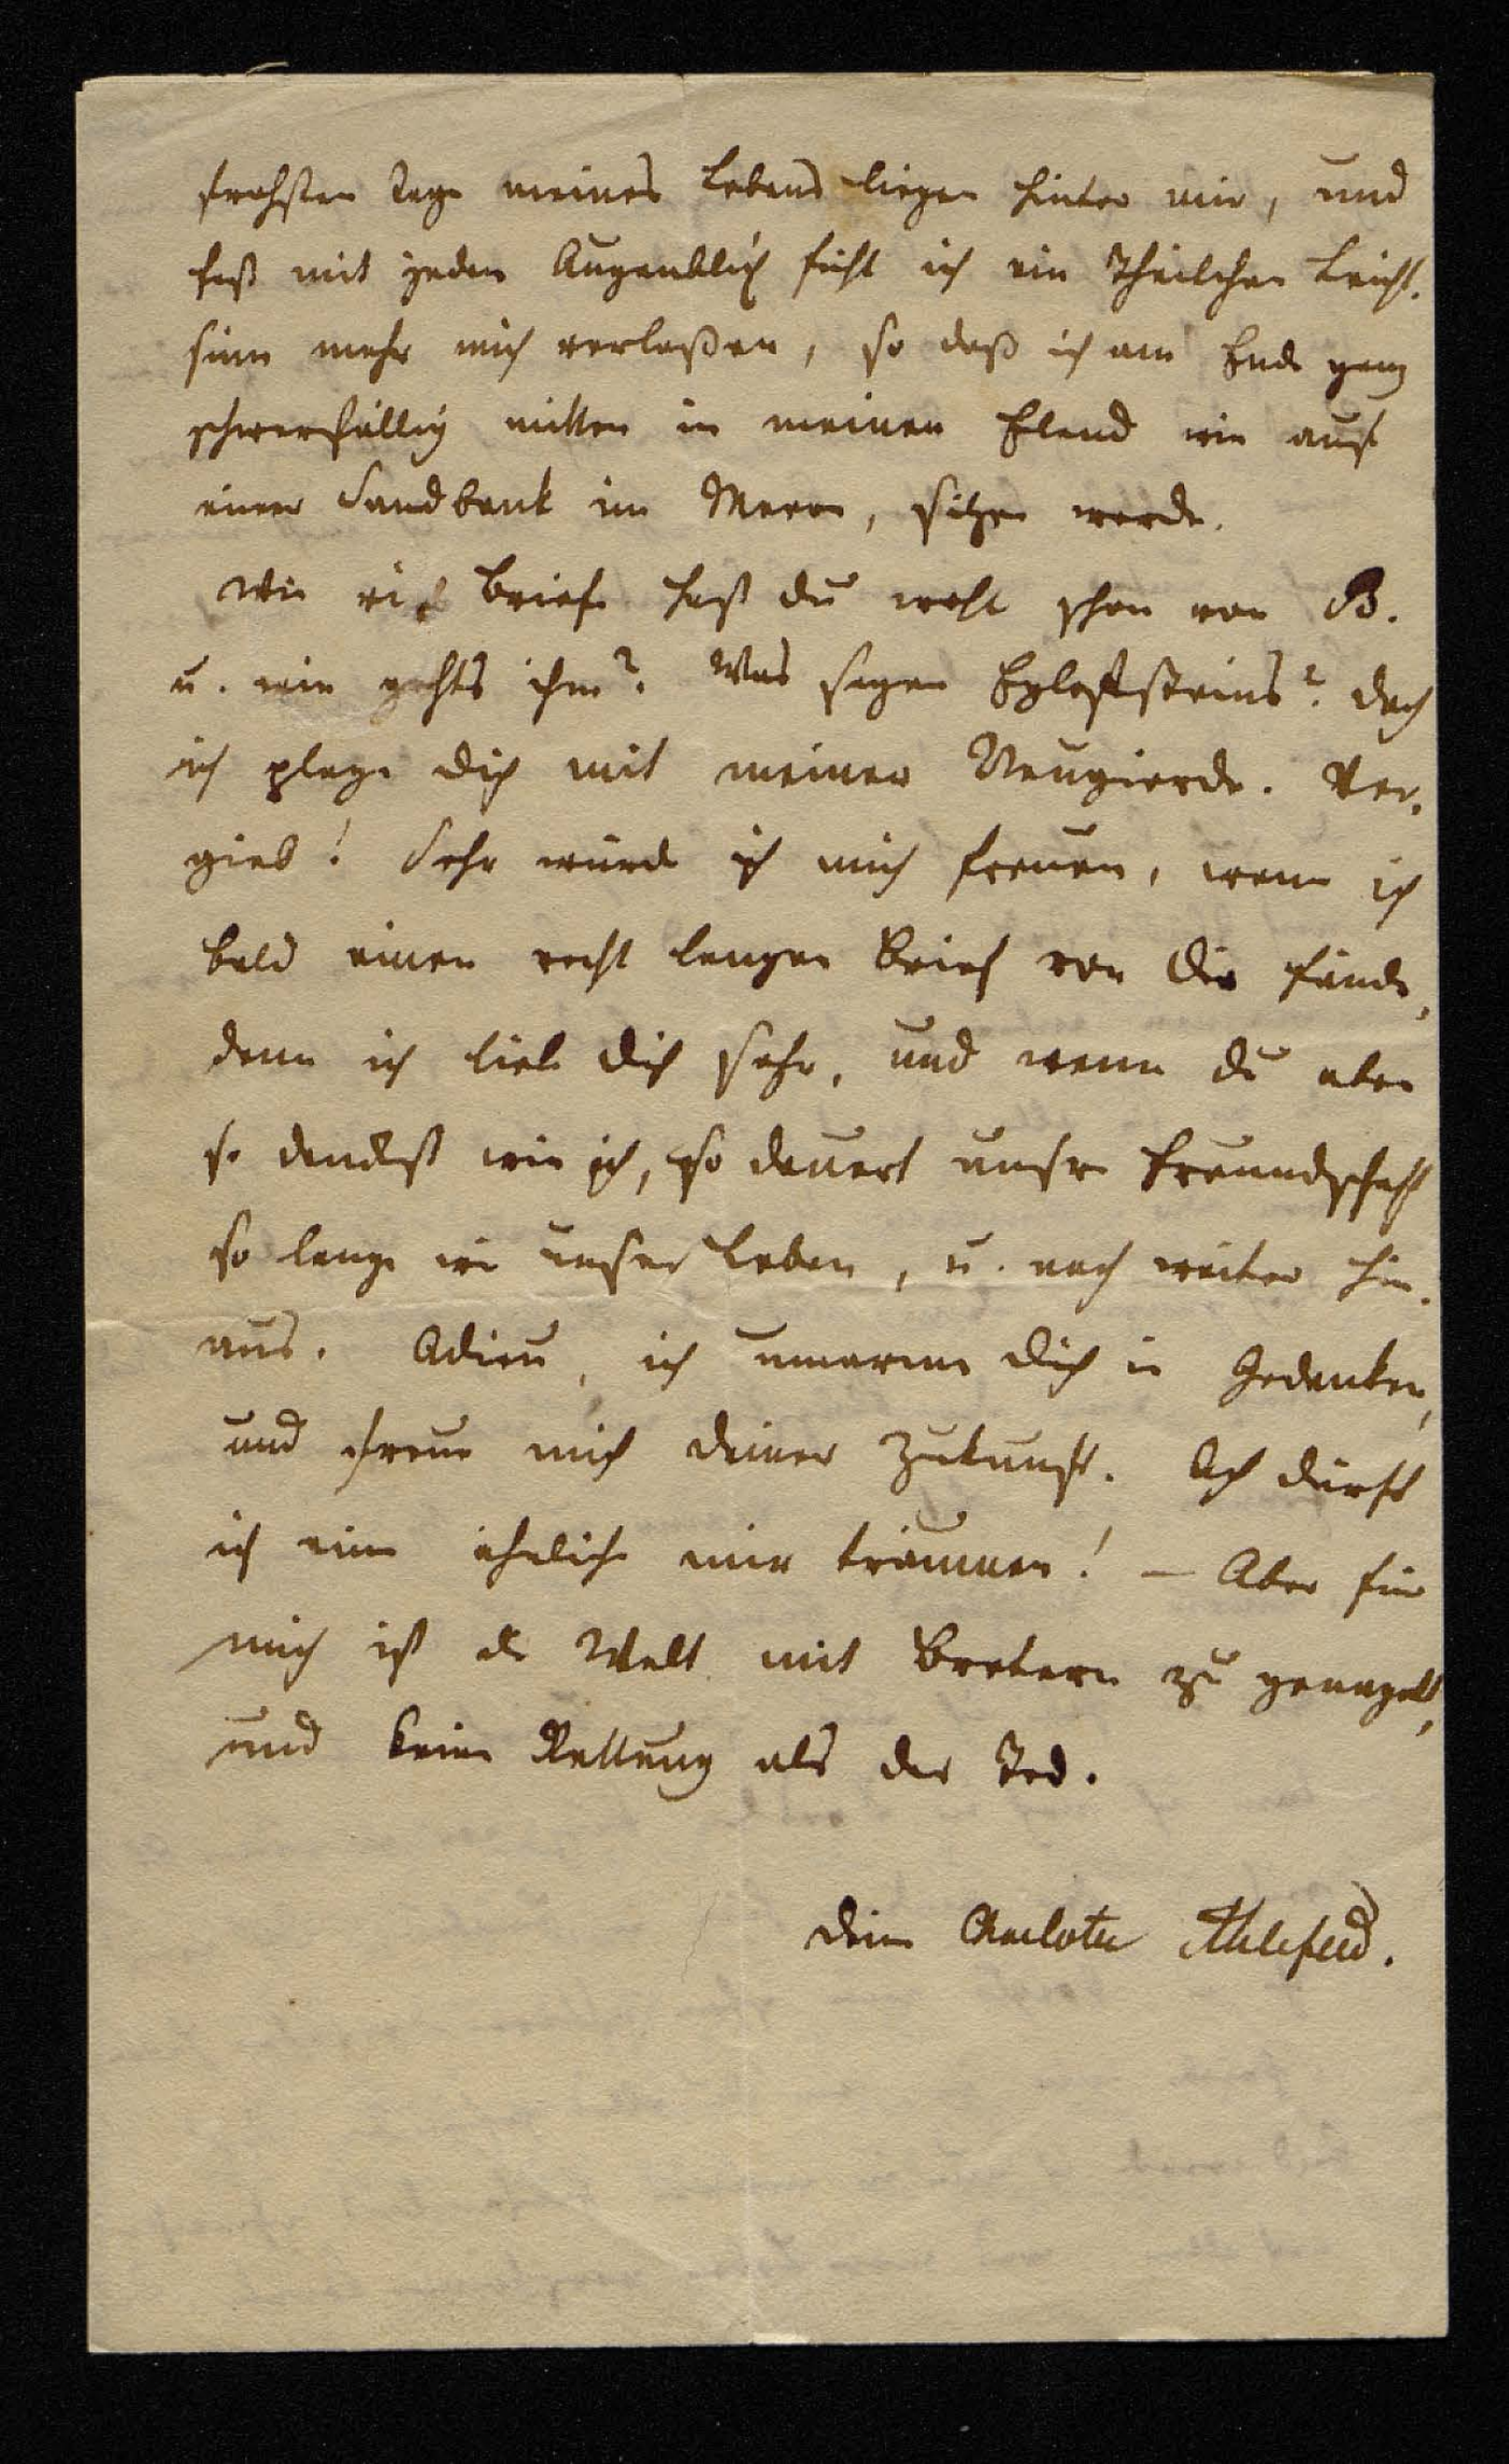 frohsten Tage meines Lebens liegen hinter mir, und
fast mit jeden Augenblick fühl ich ein Theilchen Leicht-
sinn mehr mich verlaßen, so daß ich am Ende ganz
schwerfällig mitten in meinen Elend wie auf
einer Sandbank im Meere, sitzen werde.
Wie viel Briefe hast du wohl schon von B.
u. wie gehts ihm? Was sagen Egloffsteins? doch
ich plage dich mit meiner Neugierde. Ver-
gieb! Sehr würde ich mich freuen, wenn ich
bald einen recht langen Brief von Dir fände,
denn ich liebe dich sehr, und wenn du eben
so denckst wie ich, so dauert unsre Freundschaft
so lange wie unser Leben, u. noch weiter hin-
aus. Adieu, ich umarme dich in Gedanken,
und freue mich deiner Zukunft. Ach dürft
ich eine ähnliche mir träumen! – Aber für
mich ist die Welt mit Bretern zu genagelt,
und keine Rettung als der Tod.
deine Charlotte Ahlefeld.